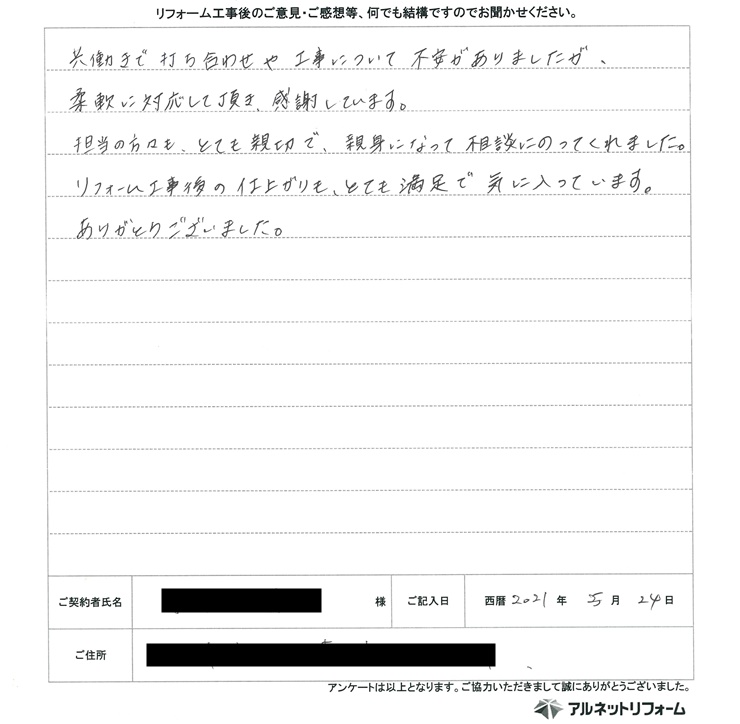 リフォーム工事後のご意見・ご感想等、何でも結構ですのでお聞かせください。
共働きで打ち合わせや工事について不安がありましたが、
柔軟に対応して頂き、感謝しています。
担当の方々も、とても親切で、親身になって相談にのってくれました。
リフォーム工事後の仕上がりも、とても満足で気に入っています。
ありがとうございました。
ご契約者氏名 様 ご記入日 西暦2021年 5月 24日
ご住所
アンケートは以上となります。ご協力いただきまして誠にありがとうございました。
アルネットリフォーム